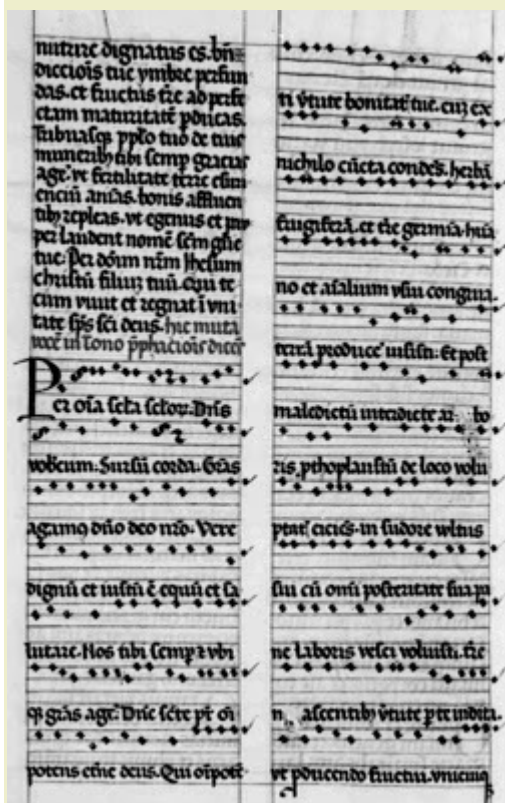 nutrire dignatus es. bn̄e
diccioīs tue ymbre perfun
das. et fructus t̄re ad perfe
ctam maturitatē pducas.
Tribuasq; pplo tuo de tuis
munerib; tibi semp gracias
agere ut fertilitate terre esuri
enciū aīas. bonis affluen
tib; repleas. ut egenus et pau
per laudent nomē glorie
tue. Per dōm nr̄m Ihesum
christū filiū tuū. qui te
cum viuit et regnat ī vni
tate sp̄s sc̄i deus. hic muta
vocē in tono p̄phacioīs dicēs
Per oīa sc̄la sc̄lor. Dn̄s
vobcum. Sursū corda. Gr̄as
agam9 dn̄o deo nr̄o. Vere
dignū et iustū ē equū et sa
lutare. Nos tibi semp ⁊ vbi
q; gr̄as ageͬ. Dn̄e sc̄te pr̄ oī
potens et̄ne deus. Qui oīpotē
ti v̄tute bonitat̄ tue. cuz ex
nichilo cūcta condeͬs. herbā
frugiferā. et t̄re germīa. hūa
no et aīalium vsui congrua.
terrā produceͬ iussisti. Et post
maledictū interdicte ar bo
ris. pthoplaustū de loco volu
ptat̄ eicieͬs. in sudore wltus
sui cū omī posteritate sua pa
ne laboris vesci voluisti. t̄re
n ascentib; v̄tute p te indita.
ut pducendo fructū. vnicuiq;